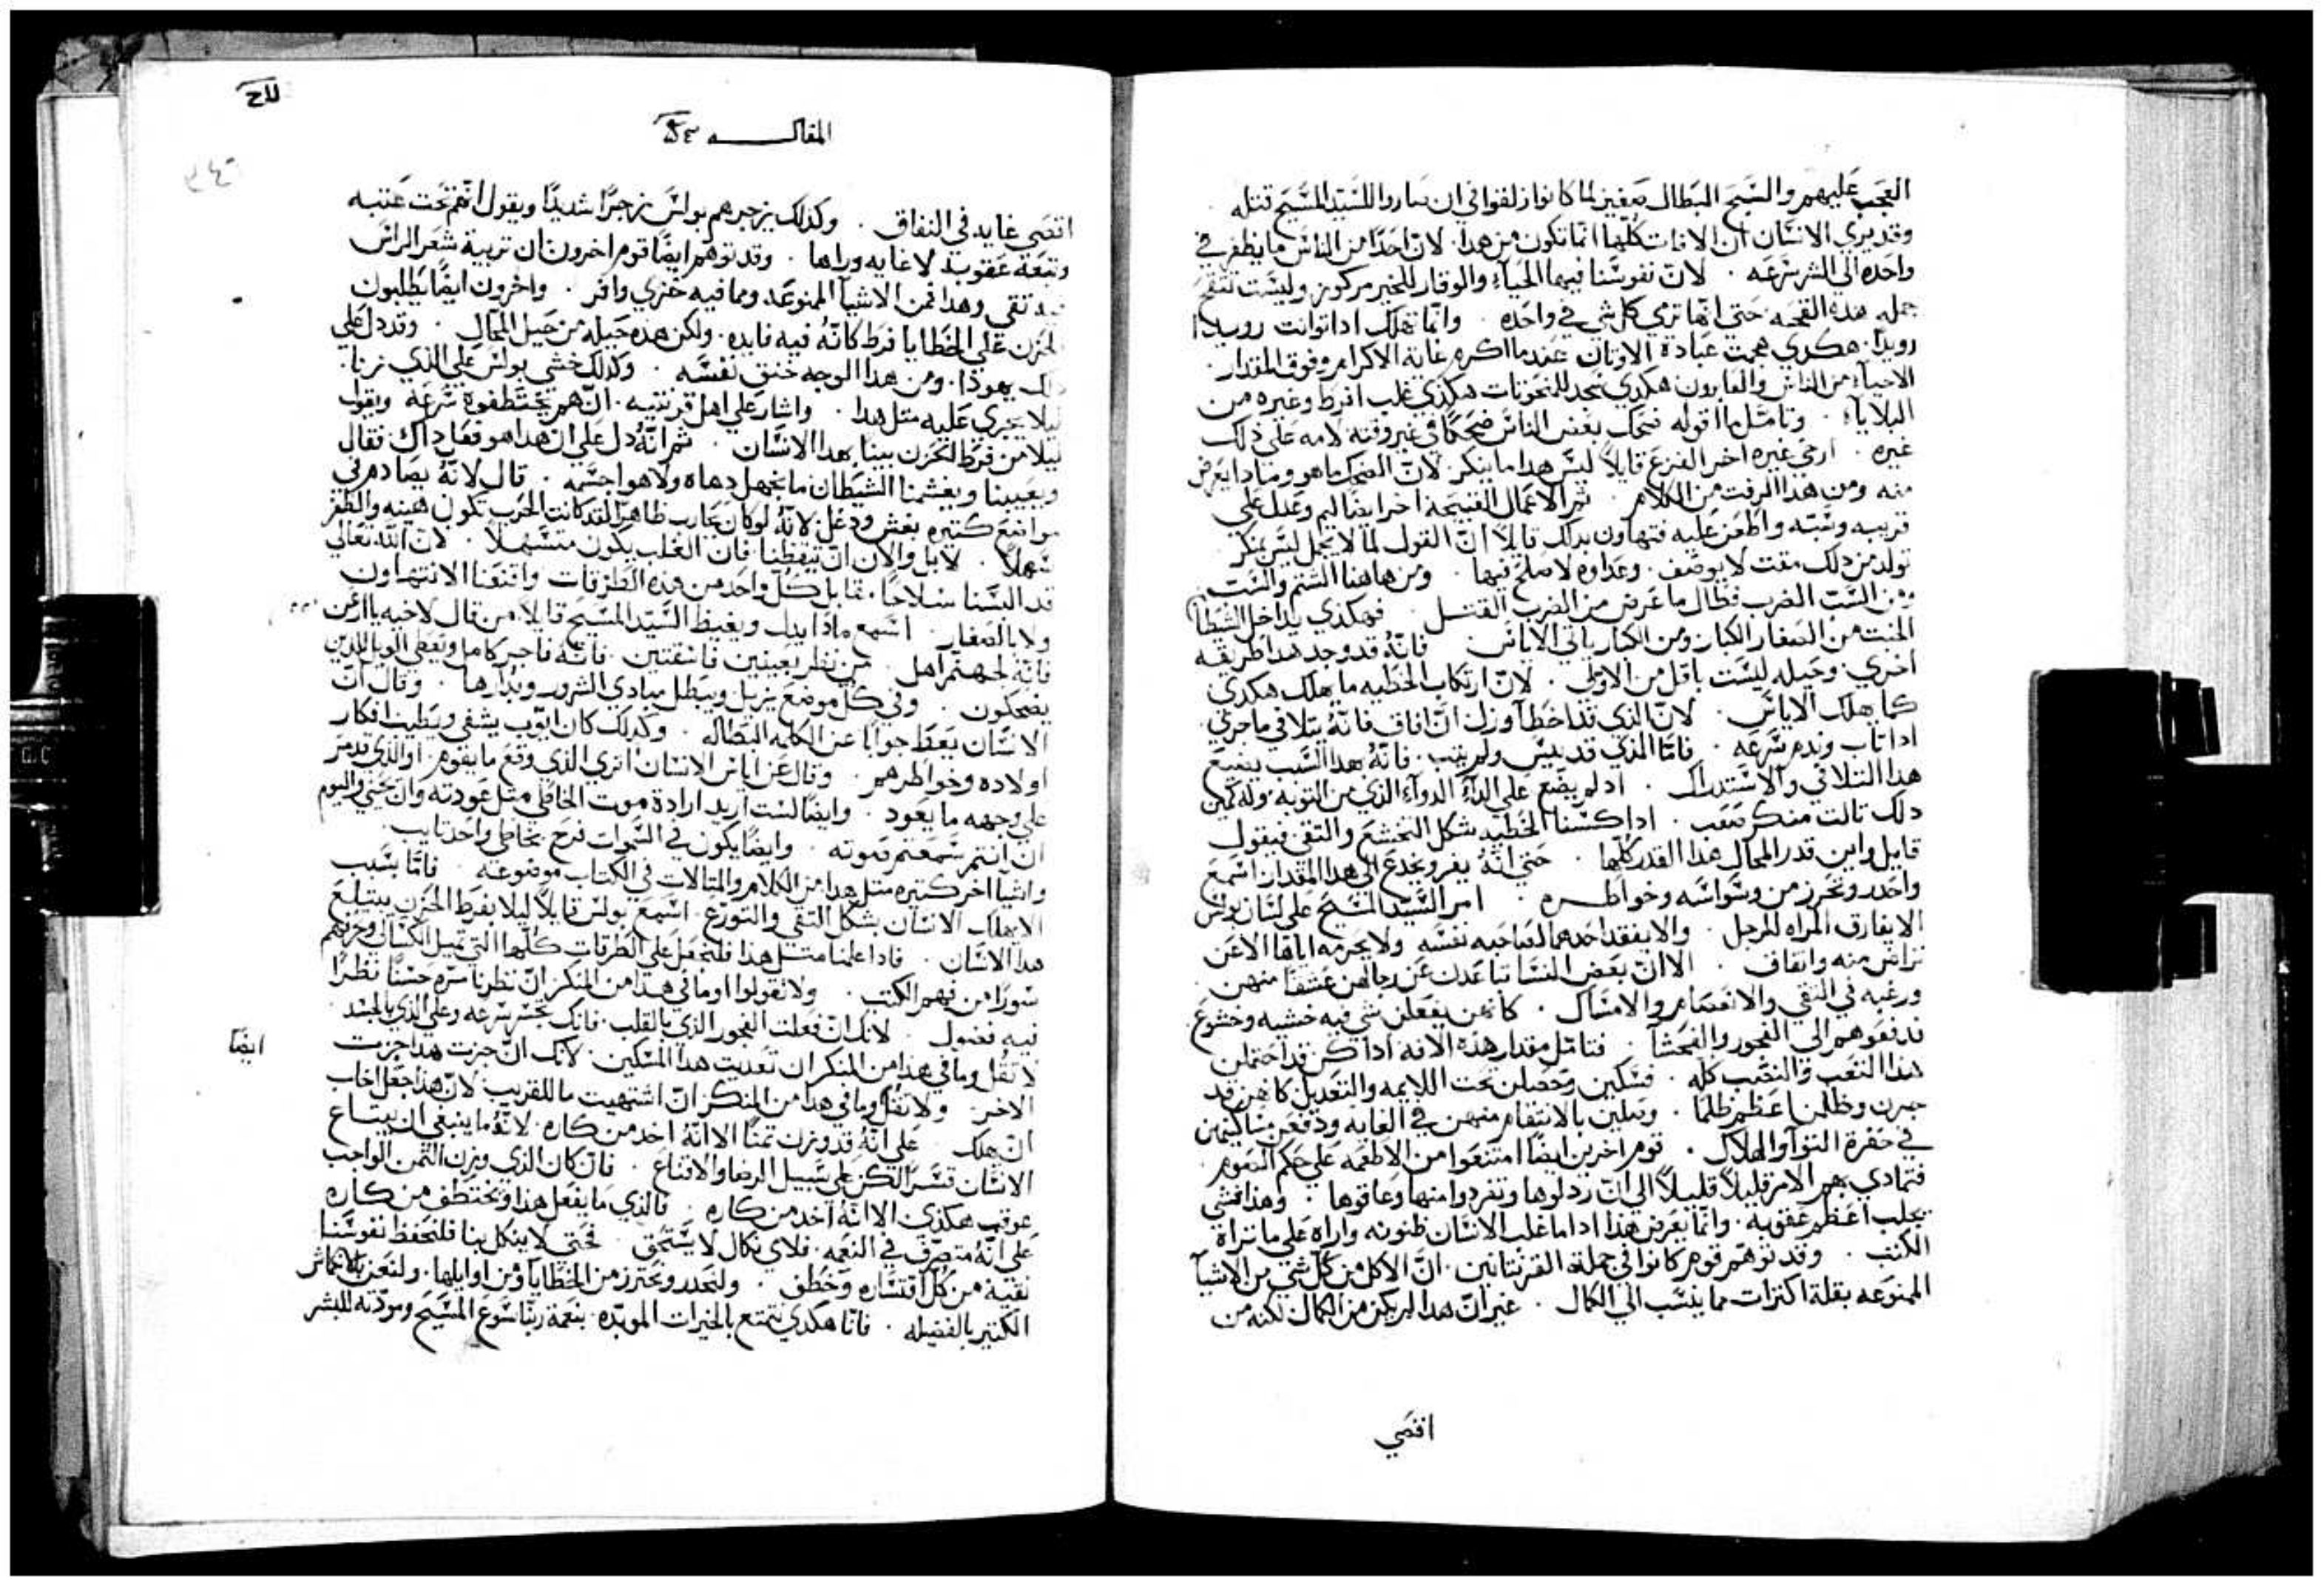 العجب عليهم والسبح البطال صغيز لما كانوا زلفوا في ان صاروا للسيد المسيح قتله
وقد يري الانسان ان الافات كلها انما تكون من هدا. لان احدًا من الناس ما يطفر في
واحده الي الشر سرعه. لان نفوسنا فيها الحياء والوقار للخير مركوز وليست تتقح
جمله هذه القحه حتي انها ترمي كل شي في واحده. وانما تهلك ادا توانت رويدًا
رويدًا. هكدي هجمت عبادة الاوثان عندما اكرم غاية الاكرام وفوق المقدار.
الاحياء من الناس والغابرون هكدي سجد للمنحوتات هكذي غلب افرط وغيره من
البلاياء. وتامل ما اقوله ضحك بعض الناس ضحكًا في غير وقته لامه علي ذلك
غيره. ارخي غيره اخر الفزع قايلاً ليس هدا ما ينكر لان الضحك ما هو وماذا يعرض
منه ومن هدا الرفت من الكلام. ثم الاعمال القبيحه اخر ايضًا ليم وعدل علي
قريبه وسبه واطعن عليه فتهاون بدلك قايلاً ان القول لما لا يجمل ليس بمنكر
تولد من دلك مقت لا يوصف. وعداوه لا صلح فيها. ومن هاهنا الشتم والسب
ومن السب الضرب فطال ما عرض من الضرب القتـل فهكذي يداخل الشيطان
الخبث من الصغار الكبار ومن الكبار ياتي الاياس فانه قد وجد هدا طريقه
اخري. وحيله ليست باقل من الاولي. لان ارتكاب الخطيه ما يهلك هكدي
كما يهلك الاياس. لان الذي قد اخطا وزل ان افاق فانه يتلافي ما جري.
اداتاب وندم سرعه. فاما الذي قد ييس ولم يتب. فانه هدا السبب يضيع
هدا التلافي والاستدراك. اد لم يضع علي الداء الدواء الذي من التوبه وله كمين
دلك ثالث منكر صعب. ادا كسنا الخطيه شكل التخشع والتقي فيقول
قايل واين قدر المحال هدا القدر كلها. حتي انه يغر ويخدع الي هدا المقدار اسمع
واحدر وتحرز من وسواسه وخواطـره. امر السيد المسيح علي لسان بولس
الا يفارق المراه للرجل. والا يفقد احدهما لصاحبه نفسه ولا يحرمه اياها الا عن
تراض منه واتفاق. الا ان بعض النسا تباعدن عن رجالهن عشقًا منهن
ورغبه في التقي والاعتصام والامساك. كانهن يفعلن شي فيه خشيه وخشوع
فدفعوهم الي الفجور والفحشا. فتامل مقدار هذه الافه ادا كن قد احتملن
هدا التعب والنصب كله. فسكين وحصلن تحت اللايمه والتعديل كانهن قد
جرن وظلمن اعظم ظلمًا. ويبلين بالانتقام منهن في الغايه ودفعن مساكينهن
في حفرة التوا والهلاك. قوم اخرين ايضًا امتنعوا من الاطعمه علي حكم الصوم.
فتمادي بهم الامر قليلاً قليلاً الي ان رذلوها وتفردوا منها وعافوها. وهدا فشي
يجلب اعظم عقوبه. وانما يعرض هذا اداما غلب الانسان ظنونه واراه علي ما تراه
الكتب. وقد توهم قوم كانوا في جملة القرنتانيين. ان الاكل من كل شي من الاشيا
الممنوعه بقلة اكتراث مما ينسب الي الكمال. غير ان هدا لم يكن من الكمال لكنه من
اقصي
المقالـــــه
اقصي غايه في النفاق. وكدلك يزجرهم بولس زجرًا شديدًا ويقول انهم تحت عتبه
وتبعة عقوبه لا غايه وراها. وقد توهم ايضًا قوم اخرون ان تربية شعر الراس
فيه تقي وهدا فمن الاشيا الممنوعه ومما فيه خزي وافر. واخرون ايضًا يطلبون
الحزن علي الخطايا فرط كانه فيه فايده. ولكن هده حيله من حيل المحال. وقد دل علي
ذلك يهوذا. ومن هدا الوجه خنق نفسه. وكدلك خشي بولس علي الذي زنا.
ليلا يجري عليه متل هدا. واشار علي اهل قرنتيه. ان هم يختطفوه سرعه ويقول
ليلا من فرط الحزن يبتلع هدا الانسان. ثم انه دل علي ان هدا هو فعل داك فقال
ويعيبنا ويغشمنا الشيطان ما نجهل دهاه ولا هواجسه. قال لانه يصادمني
مواضع كثيره بغش ودغل لانه لو كان يحارب ظاهرًا لقد كانت الحرب تكون هينه والظفر
سهلاً. لا بل والان ان تيقظنا فان الغلب يكون متسهلاً. لان الله تعالي
قد البسنا سلاحًا مقابل كل واحد من هذه الطرقات واقنعنا الا نتهاون
ولا بالصغار. اسمع ماذا يدل ويغيظ السيد المسيح قايلاً. من قال لاخيه يا ارعن
فانه لجهنم اهل. من نظر بعينين فاسقتين. فانه فاجر كامل ويعطي الويل للذين
يضحكون. وفي كل موضع يزيل ويبطل مبادي الشرور وبدارها. وقال ان
الانسان يعطي جوابًا عن الكلمه البطاله. وكدلك كان ايوب يشفي ويطبب افكار
اولاده وخواطرهم. وقال عن اياس الانسان اتري الذي وقع ما يقوم. او الذي قد مر
علي وجهه ما يعود. وايضًا لست اريد ارادة موت الخاطي مثل عودته وان يحيي واليوم
ان انتم سمعتم صوته. وايضًا يكون في السموات فرح بخاطي واحد تايب.
واشيا اخر كثيره متل هدا من الكلام والمتالات في الكتاب موضوعه. فاما بسبب
الا يهلك الانسان بشكل التقي والتورع. اسمع بولس قايلاً ليلا بفرط الحزن يبتلع
هدا الانسان. فادا علمنا متـل هدا فلنجعل علي الطرقات كلها التي تميل الكسالي وحرفهم
سورًا من فهم الكتب. ولا تقولوا وما في هدا من المنكر ان نظرنا مره حسنًا نظرًا
فيه فضول. لانك ان فعلت الفجور الذي بالقلب. فانك تجسر سرعه وعلي الذي بالجسد.
لا تقل وما في هدا من المنكر ان تعديت هدا المسكين. لانك ان جزت هدا جزت
الاخر. ولا تقل وما في هدا من المنكر ان اشتهيت ما للقريب لان هدا جعل اخاب
ان يهلك. علي انه قد وزن ثمنًا الا انه اخد من كاره. لانه ما ينبغي ان يبتـاع
الانسان قسرًا لكن علي سبيل الرضا والاقناع. فان كان الذي وزن الثمن الواجب
عوقب هكذي. الا انه اخد من كاره. فالذي ما يفعل هدا ويختطف من كاره
علي انه متصرف في النعمه. فلاي نكال لا يستحق فحتي لا ينكل بنا فلنحفظ نفوسنا
نقية من كل اقتساره وخطف. ولنحدر ونحترز من الخطايا ومن اوايلها. ولنعن بالاكثار
الكثير بالفضيله. فانا هكدي نتمتع بالخيرات الموبده. بنعمة ربنا يسوع المسيح ومودته للبشر
ايضًا